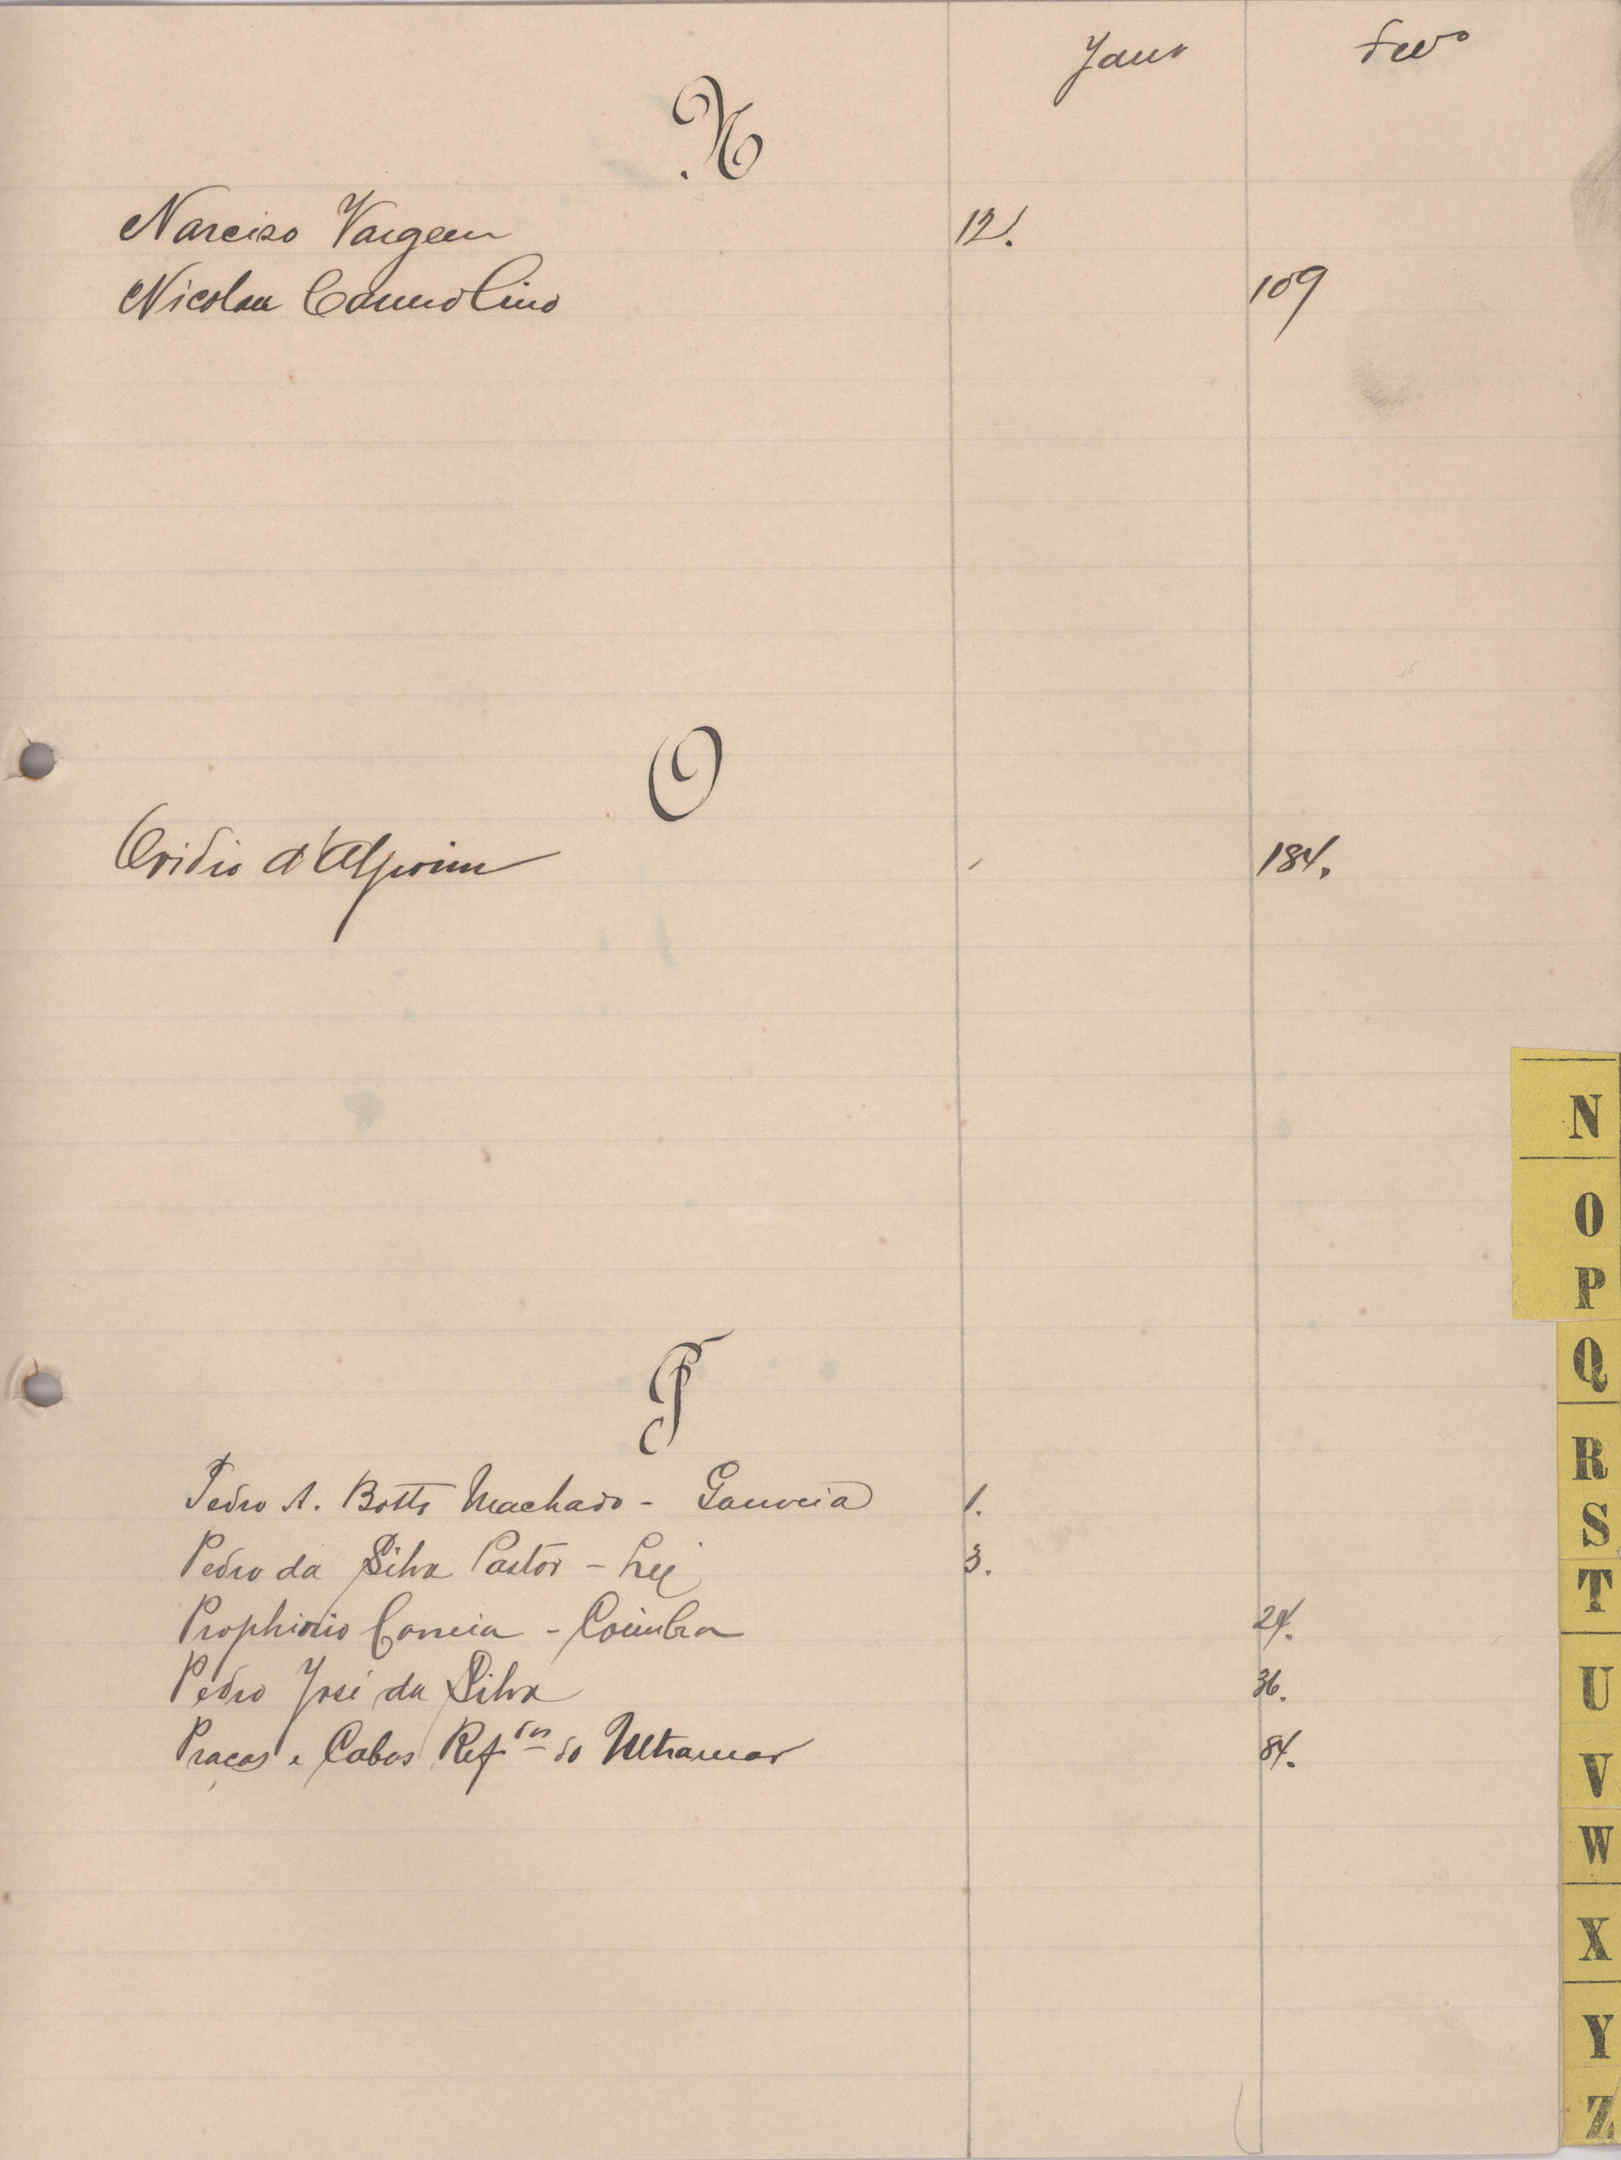 Janº Fevº
N
Narciso Vargem 12.
Nicolau Camolino 109
O
Ovidio d'Alpoim 184.
P
Pedro A. Botto Machado - Gouveia 1.
Pedro da Silva Pastor - 3.
Prophirio Correia - Coimbra 24.
Pedro José da Silva 36.
Praças e Cabos Ref.dos do Ultramar 84.
N
O
P
Q
R
S
T
U
V
W
X
Y
Z